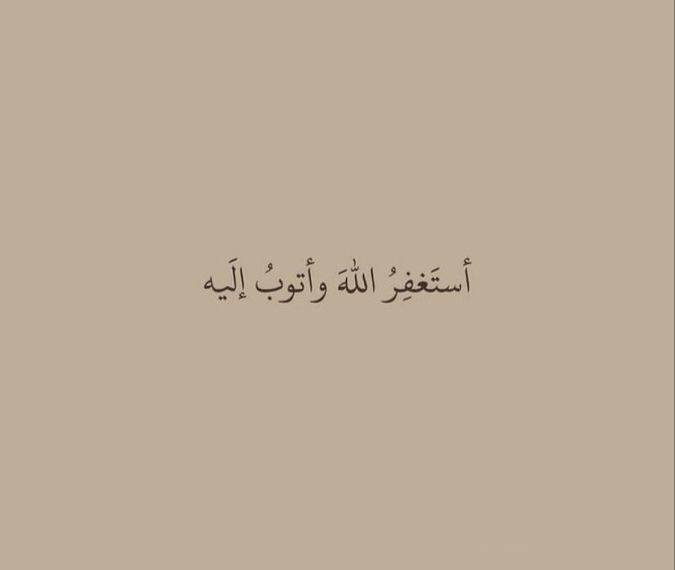 أستَغفِرُ اللهَ وأتوبُ إلَيه